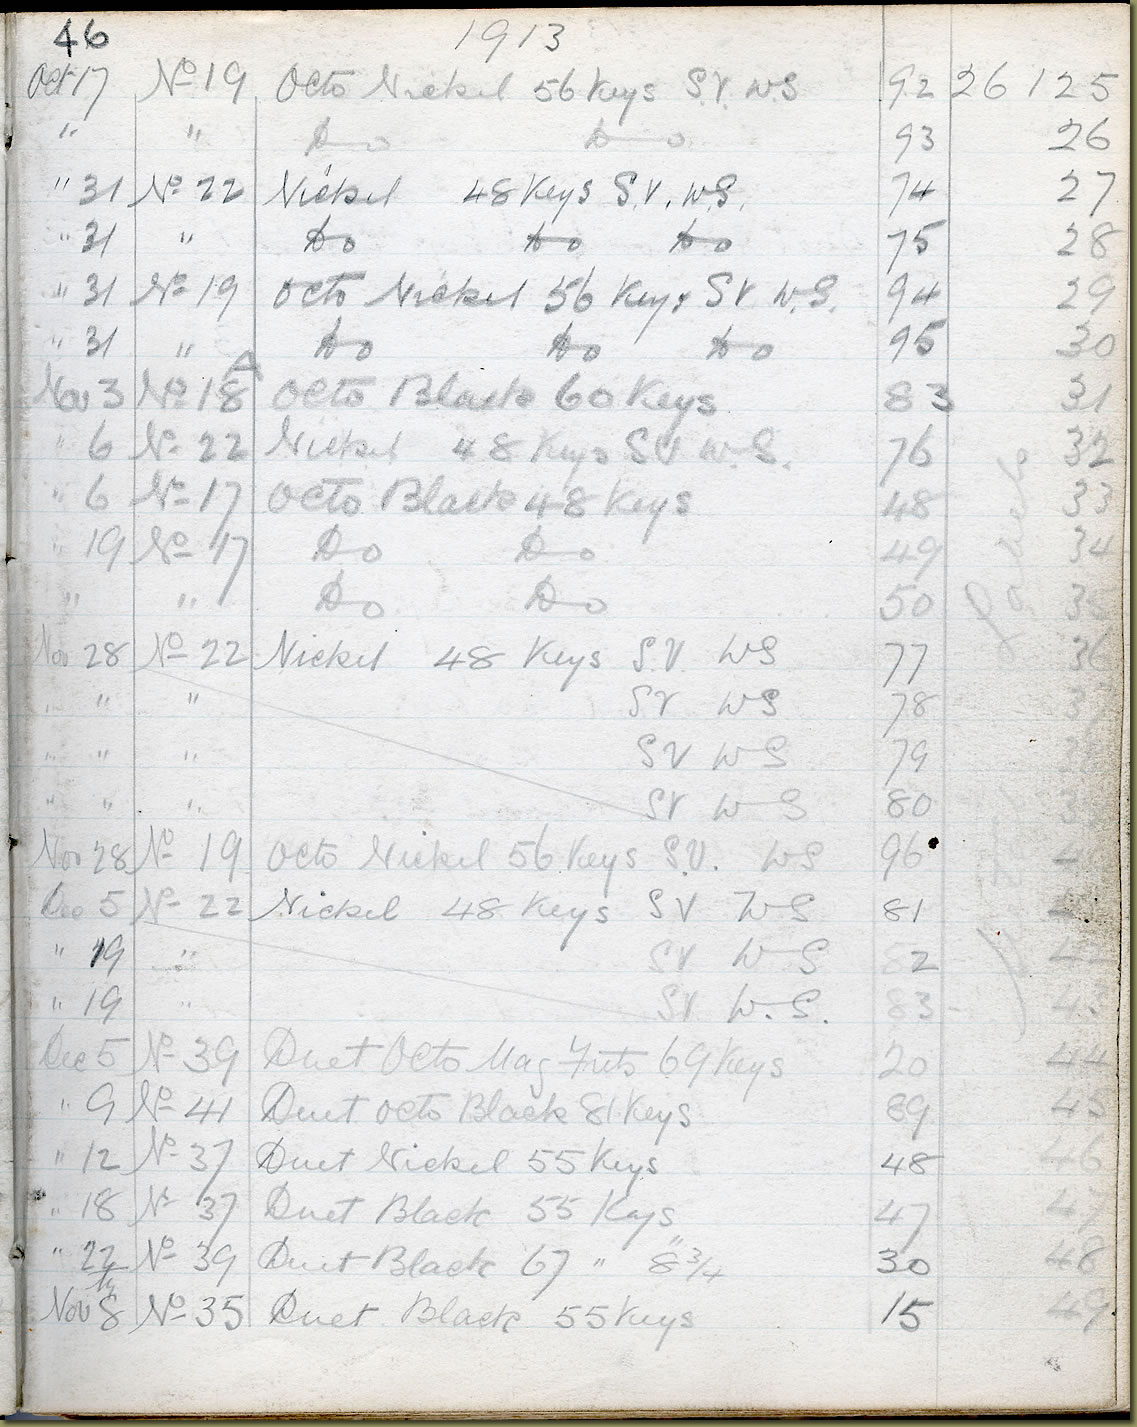 46 1913
Oct 17 No 19 Octo Nickel 56 Keys S.V. W.S 92 26125
" " Do Do 93 26
" 31 No 22 Nickel 48 Keys S.V. W.S. 74 27
" 31 " Do Do Do 75 28
" 31 No 19 Octo Nickel 56 Keys SV W.S. 94 29
" 31 " Do Do Do 95 30
Nov 3 No 18 A Octo Black 60 Keys 83 31
" 6 No 22 Nickel 48 Keys SV W.S. 76 32
" 6 No 17 Octo Black 48 Keys 48 33
" 19 No 17 Do Do 49 34
" " Do Do 50 35
Nov 28 No 22 Nickel 48 Keys S.V. WS 77 36
" " SV WS 78 37
" " " SV WS 79
" " " SV WS 80
Nov 28 No 19 Octo Nickel 56 Keys S.V. WS 96
Dec 5 No 22 Nickel 48 Keys SV WS 81
" 19 " SV WS 82 42
" 19 " SV W.S. 83 43
Dec 5 No 39 Duet Octo Mag 69 Keys 20 44
" 9 No 41 Duet Octo Black 81 Keys 89 45
" 12 No 37 Duet Nickel 55 Keys 48 46
" 18 No 37 Duet Black 55 Keys 47 47
" 22 No 39 Duet Black 67 " 8 3/4" 30 48
Nov 8 No 35 Duet Black 55 Keys 15 49